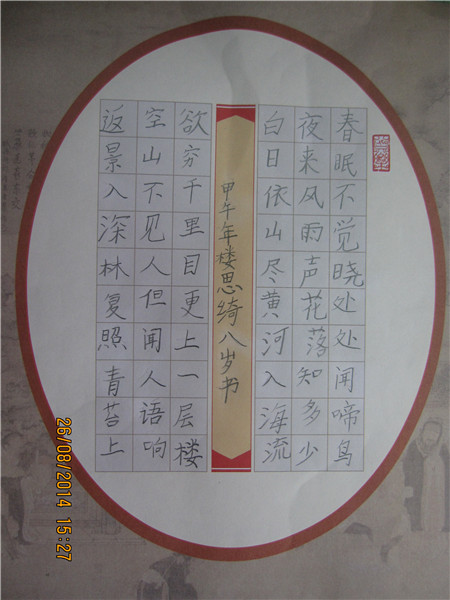 春眠不觉晓处处闻啼鸟
夜来风雨声花落知多少
白日依山尽黄河入海流
甲午年楼思绮八岁书
欲穷千里目更上一层楼
空山不见人但闻人语响
返景入深林复照青苔上
26/08/2014 15:27